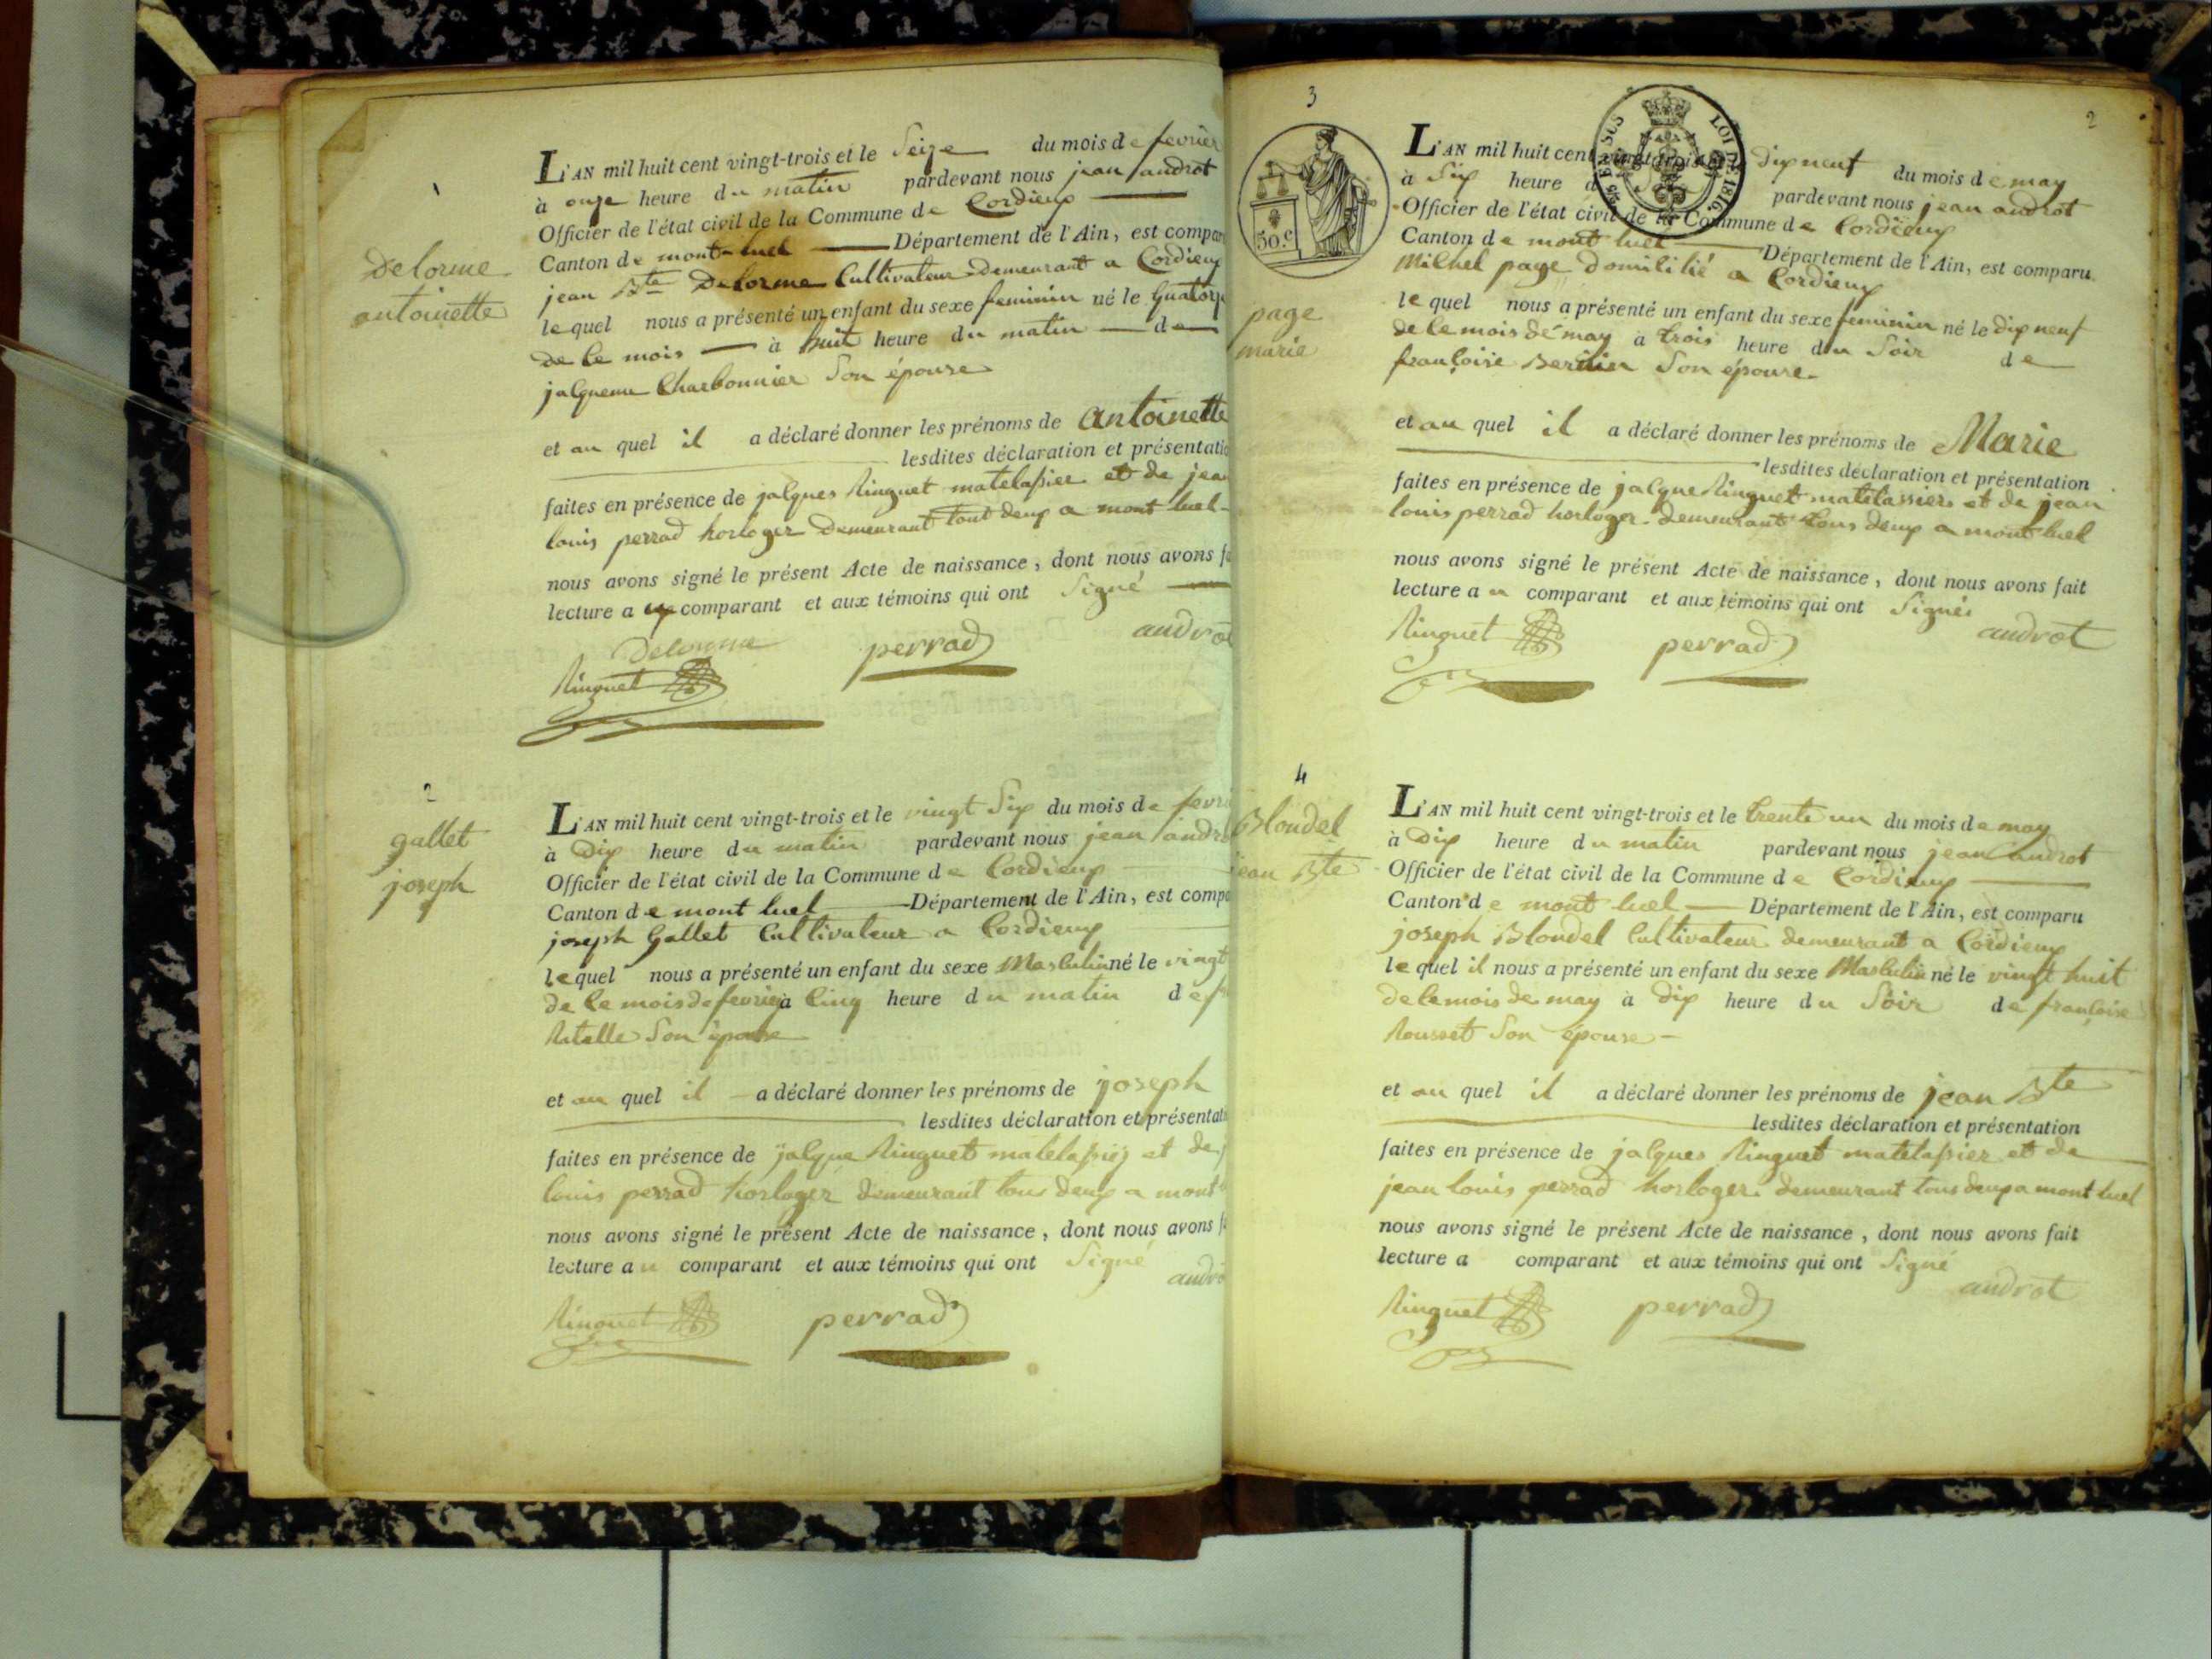 1
Delorme
antoinette
L'AN mil huit cent vingt-trois et le Seize du mois de fevrier
à onze heure du matin pardevant nous jean androt
Officier de l'état civil de la Commune de Cordieux
Canton de mont-luel Département de l'Ain, est compar
jean Bte Delorme Cultivateur demeurant a Cordieux
lequel nous a présenté un enfant du sexe feminin né le Quatorz
de ce mois à huit heure du matin de
jacqueme Charbonnier Son épouse
et au quel il a déclaré donner les prénoms de antoinette
lesdites déclaration et présentatio
faites en présence de jacques Ringuet matelassier et de jean
louis perrad horloger Demeurant tout deux a mont luel
nous avons signé le présent Acte de naissance, dont nous avons fa
lecture a comparant et aux témoins qui ont Signé
Delorme perrad androt
Ringuet
2
gallet
joseph
L'AN mil huit cent vingt-trois et le vingt Six du mois de fevri
à Dix heure du matin pardevant nous jean andro
Officier de l'état civil de la Commune de Cordieux
Canton de mont luel Département de l'Ain, est compa
joseph Gallet Cultivateur a Cordieux
lequel nous a présenté un enfant du sexe Masculin né le vingt
de ce mois de fevrier à Cinq heure du matin de
Ratelle Son épouse
et au quel il a déclaré donner les prénoms de joseph
lesdites déclaration et présentati
faites en présence de jacque Ringuet matelassier et de j
louis perrad horloger demeurant tous deux a mont
nous avons signé le présent Acte de naissance, dont nous avons f
lecture au comparant et aux témoins qui ont Signé
andro
Ringuet perrad
3
2
50.c
EN SUS LOI DE 1816.
page
marie
L'AN mil huit cent vingt-trois et le dix neuf du mois de may
à Six heure d pardevant nous jean androt
Officier de l'état civil de la Commune de Cordieux
Canton de mont luel Département de l'Ain, est comparu
Michel page domicilié a Cordieux
lequel nous a présenté un enfant du sexe feminin né le dix neuf
de ce mois de may à trois heure du Soir de
françoise Bernier Son épouse
et au quel il a déclaré donner les prénoms de Marie
lesdites déclaration et présentation
faites en présence de jacque Ringuet matelassier et de jean
louis perrad horloger demeurant tous deux a mont luel
nous avons signé le présent Acte de naissance, dont nous avons fait
lecture au comparant et aux témoins qui ont Signés
Ringuet perrad androt
4
Blondel
jean Bte
L'AN mil huit cent vingt-trois et le trente un du mois de may
à Dix heure du matin pardevant nous jean androt
Officier de l'état civil de la Commune de Cordieux
Canton de mont luel Département de l'Ain, est comparu
joseph Blondel Cultivateur demeurant a Cordieux
lequel il nous a présenté un enfant du sexe Masculin né le vingt huit
de ce mois de may à dix heure du Soir de françoise
Rousset Son épouse
et au quel il a déclaré donner les prénoms de jean Bte
lesdites déclaration et présentation
faites en présence de jacques Ringuet matelassier et de
jean louis perrad horloger demeurant tous deux a mont luel
nous avons signé le présent Acte de naissance, dont nous avons fait
lecture a comparant et aux témoins qui ont Signé
androt
Ringuet perrad